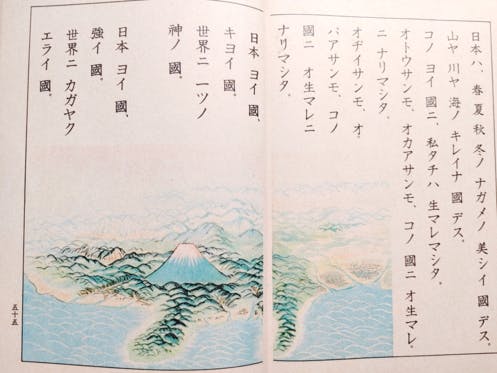 日本ハ、春夏秋冬ノナガメノ美シイ國デス。
山ヤ川ヤ海ノキレイナ國デス。
コノヨイ國ニ、私タチハ生マレマシタ。
オトウサンモ、オカアサンモ、コノ國ニオ生マレ
ニナリマシタ。
オヂイサンモ、オ
バアサンモ、コノ
國ニオ生マレニ
ナリマシタ。
日本ヨイ國、
キヨイ國。
世界ニ一ツノ
神ノ國。
日本ヨイ國、
強イ國。
世界ニカガヤク
エライ國。
五十五